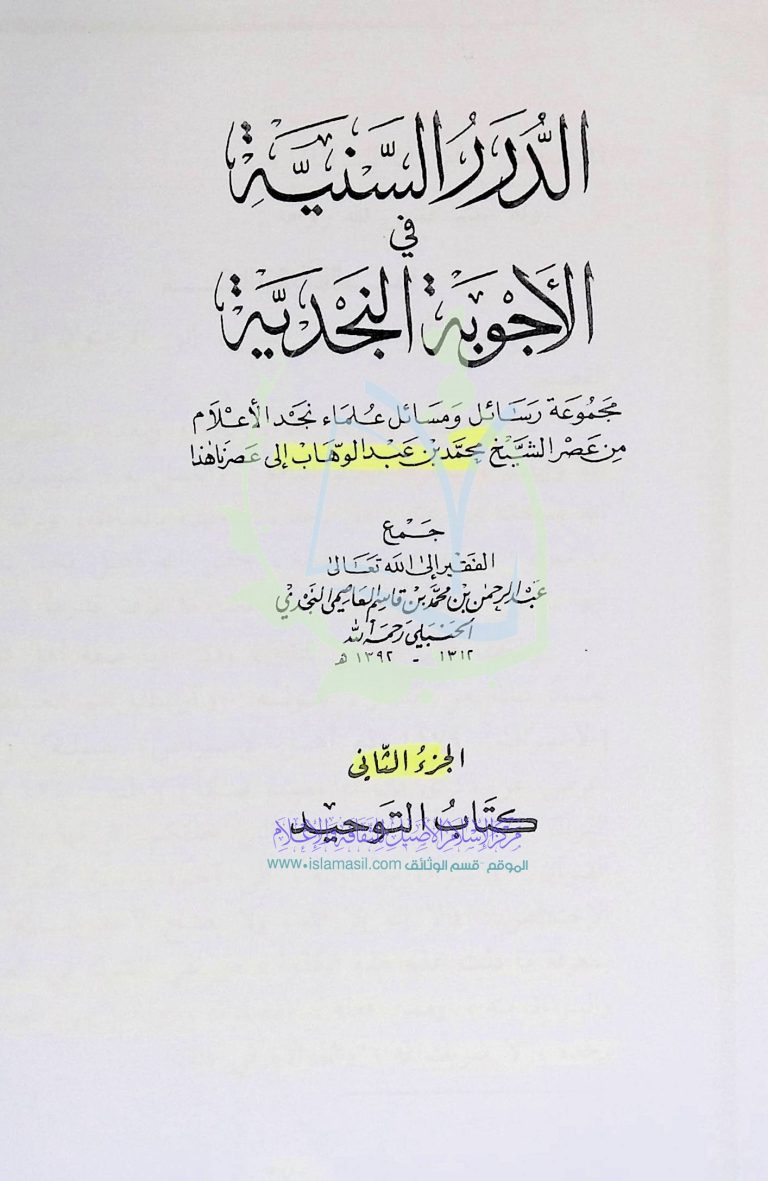 الدُّرَرُ السَّنِيَّة
في
الأَجْوِبَةِ النَّجْدِيَّة
مَجْمُوعَة رَسَائل وَمَسَائل عُلمَاء نَجْد الأَعْلَام
مِن عَصْر الشَّيْخ محمَّد بن عَبْد الوهَّاب إلى عَصرنَا هٰذا
جَمع
الفَقير إلى الله تَعَالىٰ
عَبْد الرحمٰن بن محمَّد بن قاسِم العَاصِمى النَّجْدي
الحَنبَلي رَحمَه الله
١٣١٢ - ١٣٩٢ هـ
الجزءُ الثَّاني
كتَابُ التَوحيد
مركز الإسلام الأصيل للثقافة والإعلام
الموقع قسم الوثائق www.islamasil.com